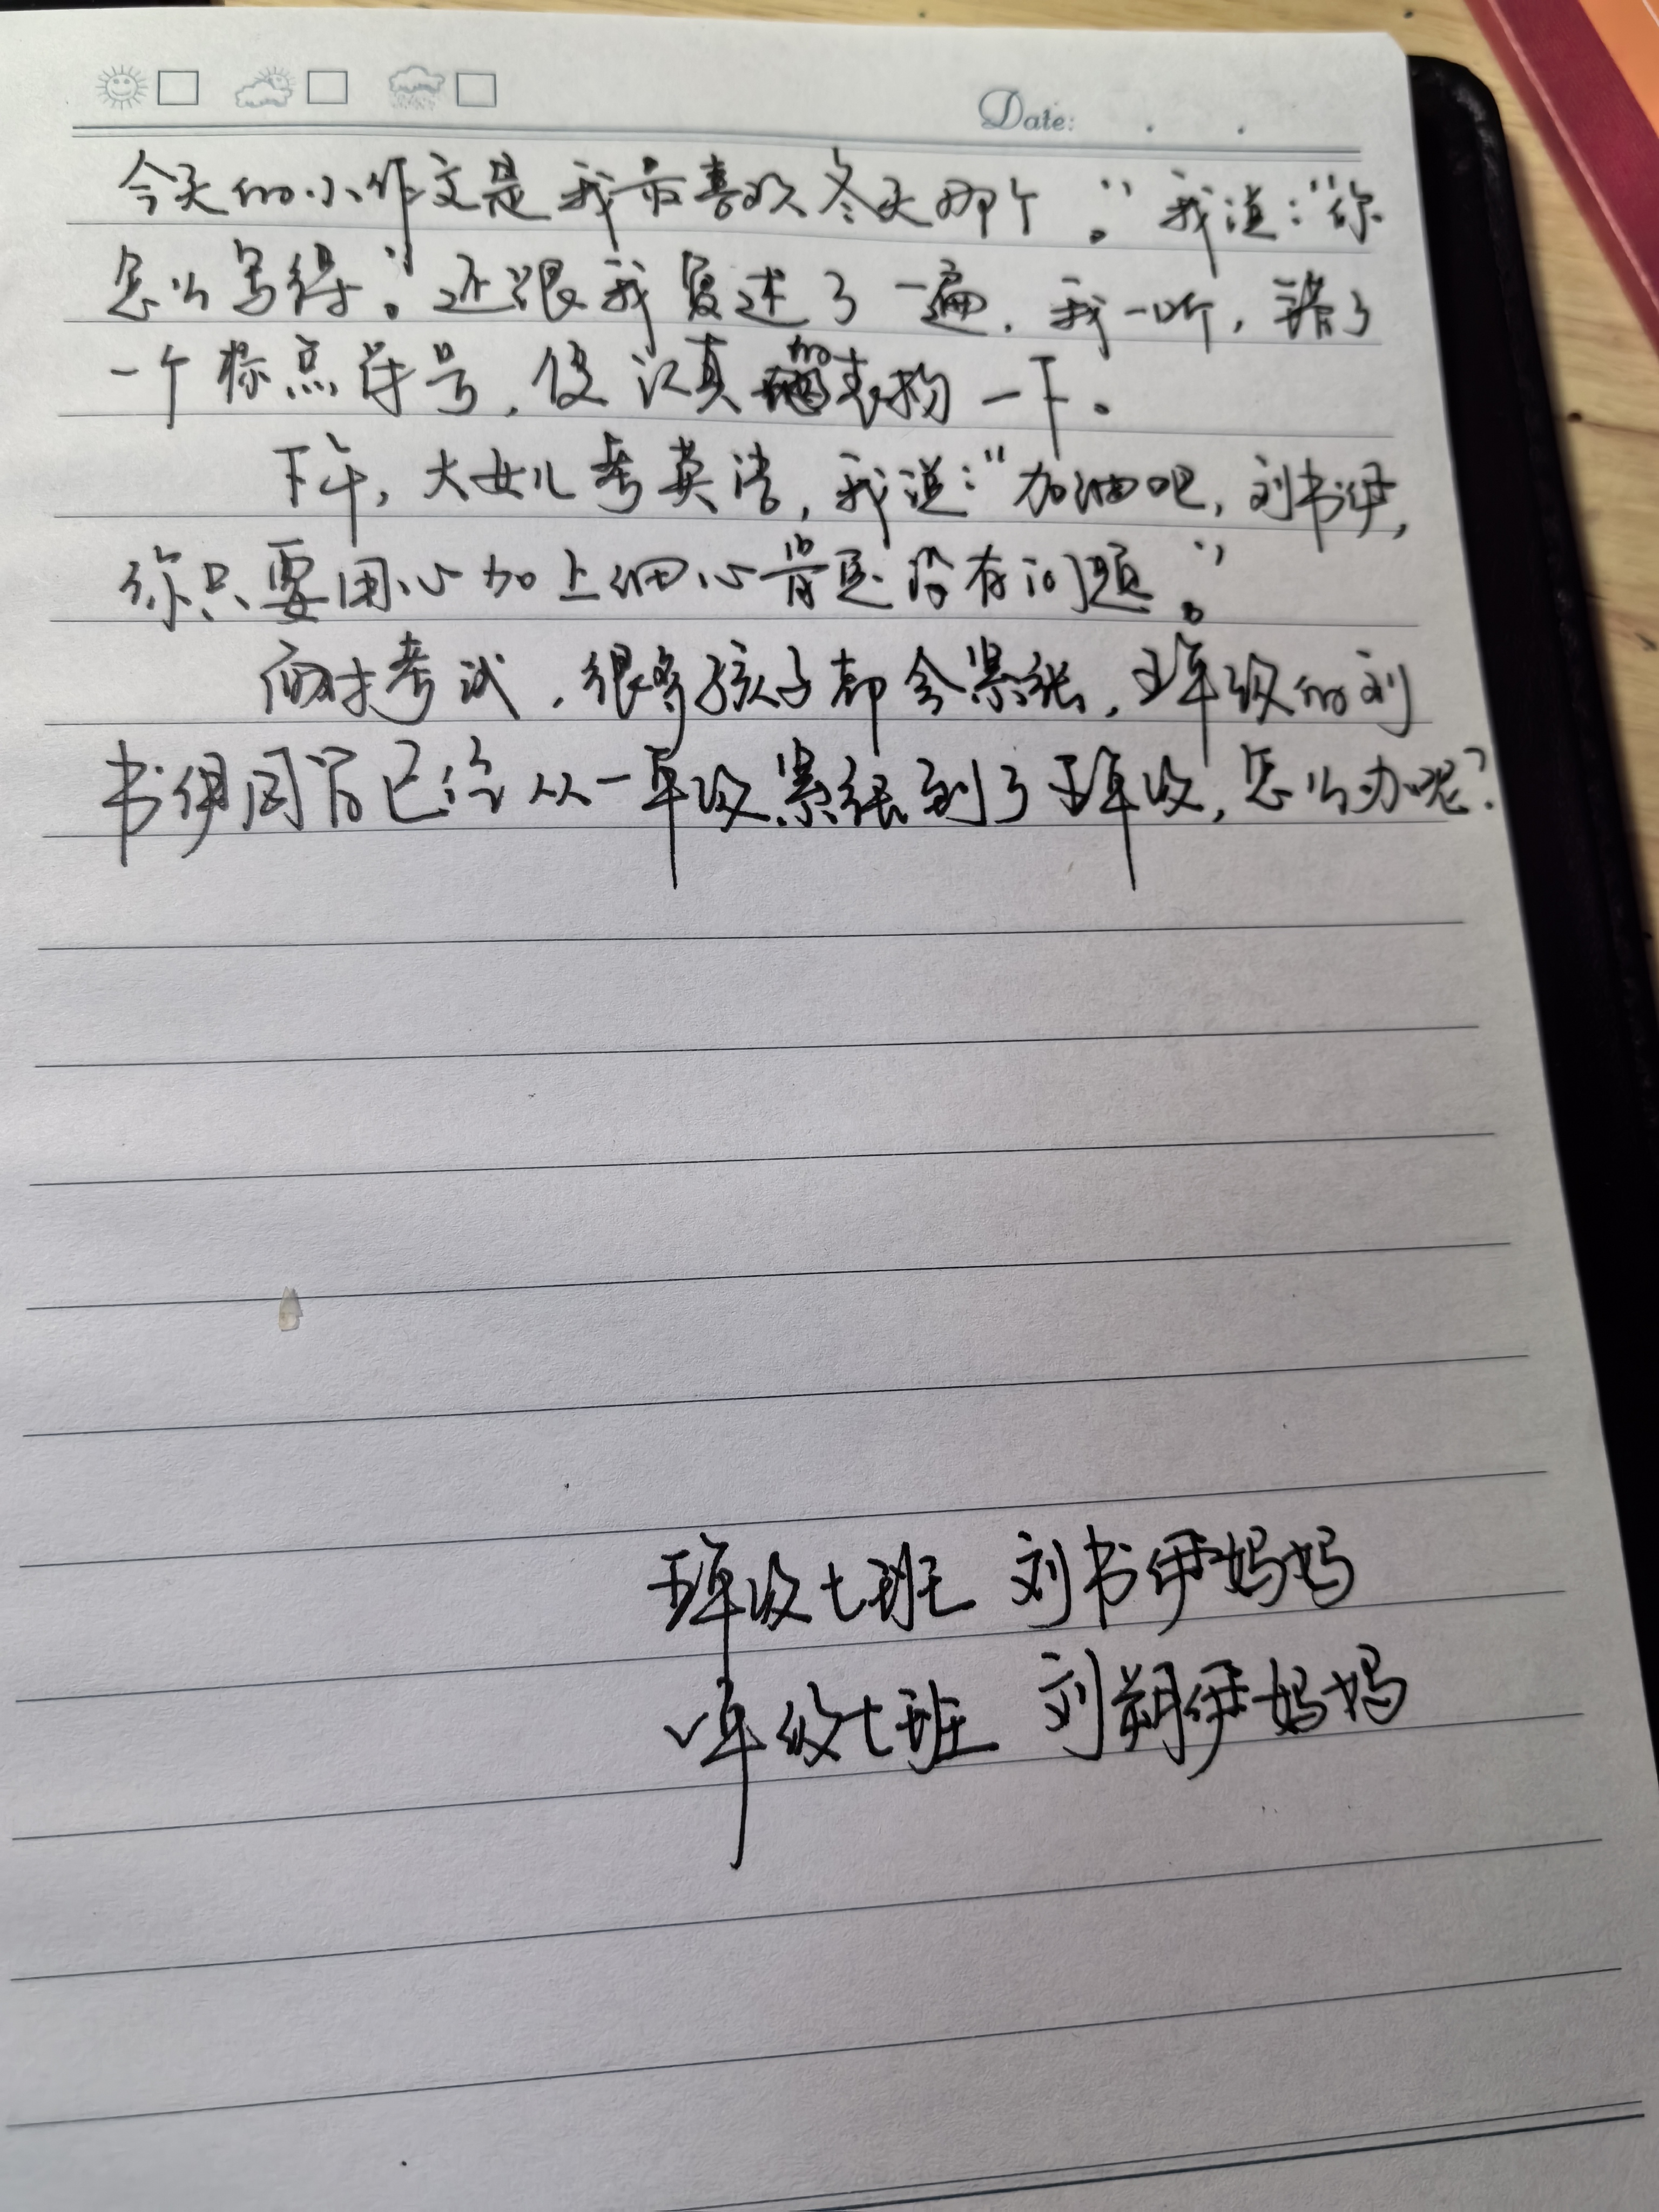 Date:
今天的小作文是我最喜欢冬天那个。”我说:“你
怎么写得。”还跟我复述了一遍,我一听,错了
一个标点符号,便认真的表扬一下。
下午,大女儿考英语,我说:“加油吧,刘书伊,
你只要用心加上细心肯定没有问题。”
面对考试,很多孩子都会紧张,五年级的刘
书伊同学已经从一年级紧张到了五年级,怎么办呢?
五年级七班 刘书伊妈妈
一年级七班 刘朔伊妈妈